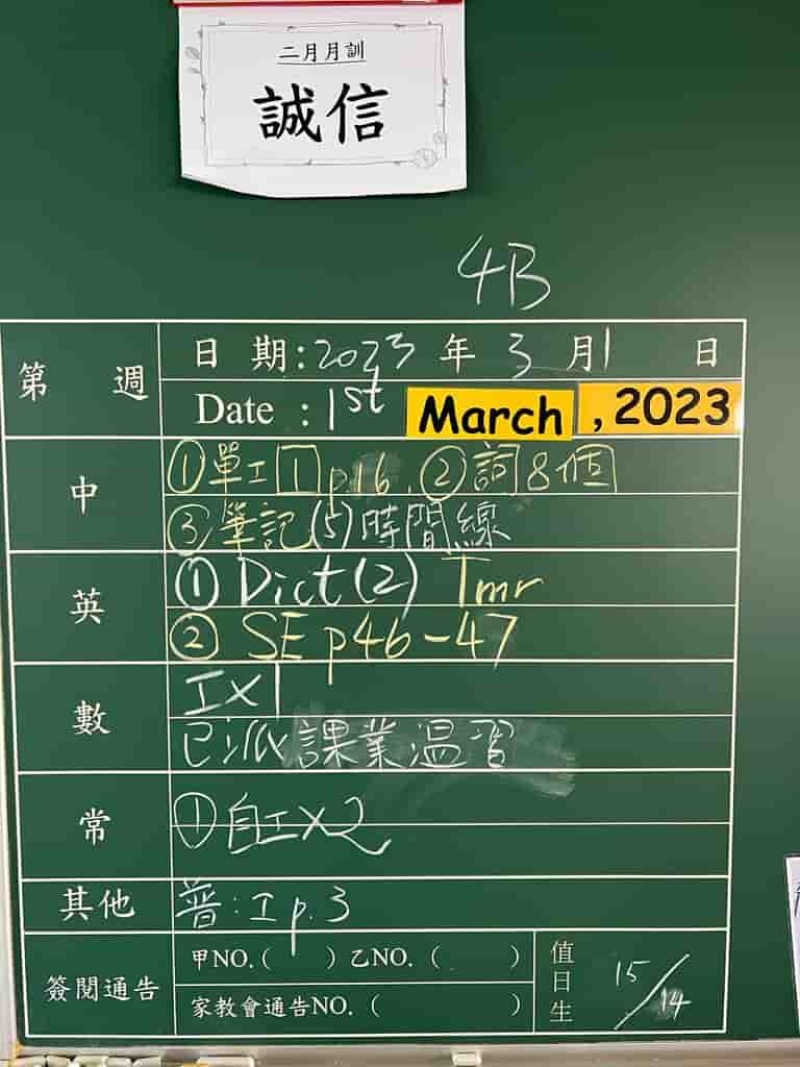 二月月訓
誠信
4B
第 週
日 期:2023 年 3 月1 日
Date : 1st March , 2023
中
①單工1 p.16. ②詞8個
③筆記(5)時間線
英
① Dict(2) Tmr
② SE p46-47
數
工x1
已派課業温習
常
①自工x2
其他
普:工p.3
簽閱通告
甲NO.( ) 乙NO. ( )
家教會通告NO. ( )
值日生
15/14